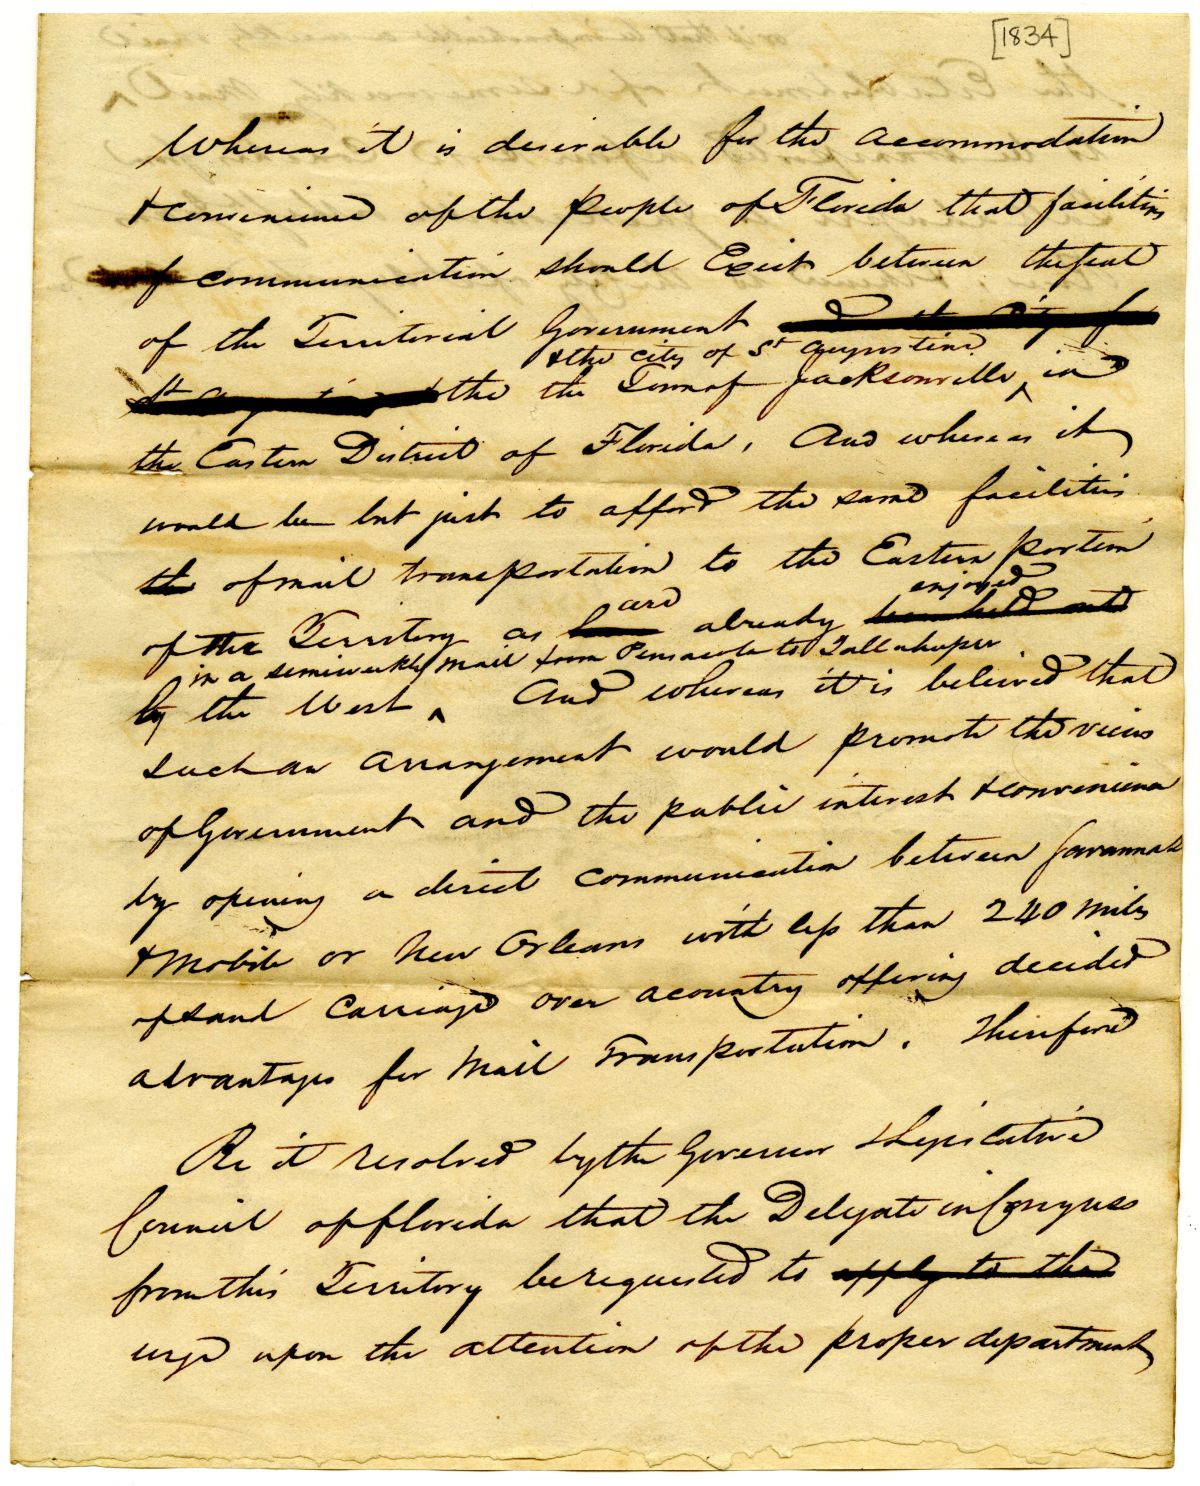 [1834]
Whereas it is desirable for the accommodation
& convenience of the people of Florida that facilities
of communication should Exist between the seat
of the Territorial Government and the City of
St Augustine & the the Town of Jacksonville ^ in
& the city of St Augustine
the Eastern District of Florida, And whereas it
would be but just to afford the same facilities
the of mail transportation to the Eastern portion
of the Territory as have are already been held out enjoyed
by the West ^ And whereas it is believed that
in a semiweekly mail from Pensacola to Tallahassee
such an arrangement would promote the views
of Government and the public interest & convenience
by opening a direct communication between Savannah
& Mobile or New Orleans with less than 240 miles
of land carriage over a country offering decided
advantages for Mail Transportation. Therefore
Be it resolved by the Governor & Legislative
Council of Florida that the Delegate in Congress
from this Territory be requested to apply to the
urge upon the attention of the proper department